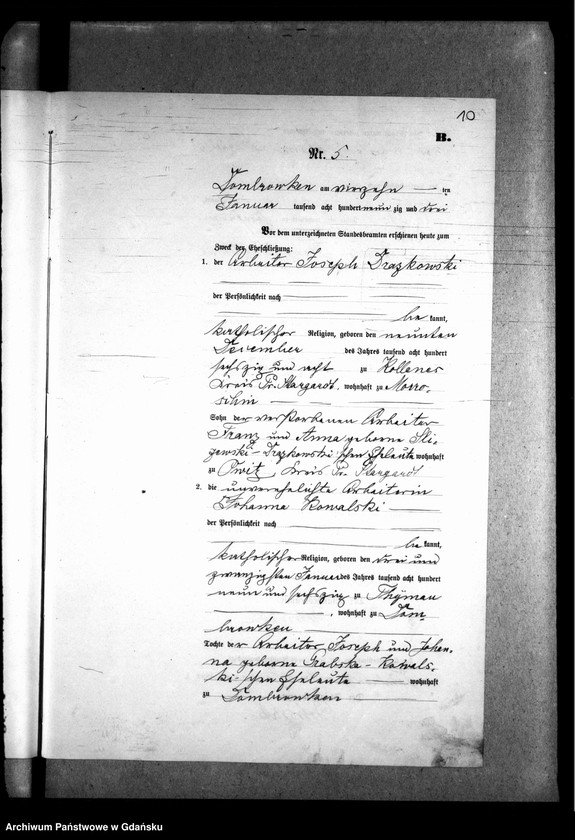 10
B.
Nr. 5.
Dombrowken am vierzehn ten
Januar tausend acht hundert neunzig und drei
Vor dem unterzeichneten Standesbeamten erschienen heute zum
Zweck der Eheschließung:
1. der Arbeiter Joseph Drazkowski
der Persönlichkeit nach
be kannt,
katholischer Religion, geboren den neunten
Dezember des Jahres tausend acht hundert
sechszig und acht zu
Kreis Pr. Stargardt, wohnhaft zu
Sohn der verstorbenen Arbeiter
Franz und Anna geborne
Drazkowski'schen Eheleute wohnhaft
zu Owitz Kreis Pr. Stargardt
2. die unverehelichte Arbeiterin
Johanna Kowalski
der Persönlichkeit nach
be kannt,
katholischer Religion, geboren den drei und
zwanzigsten Januar des Jahres tausend acht hundert
neun und sechszig zu Thymau
, wohnhaft zu Dom-
browken
Tochter der Arbeiter Joseph und Johan-
na geborne Grabska-Kowals-
ki'schen Eheleute wohnhaft
zu Dombrowken
Archiwum Państwowe w Gdańsku